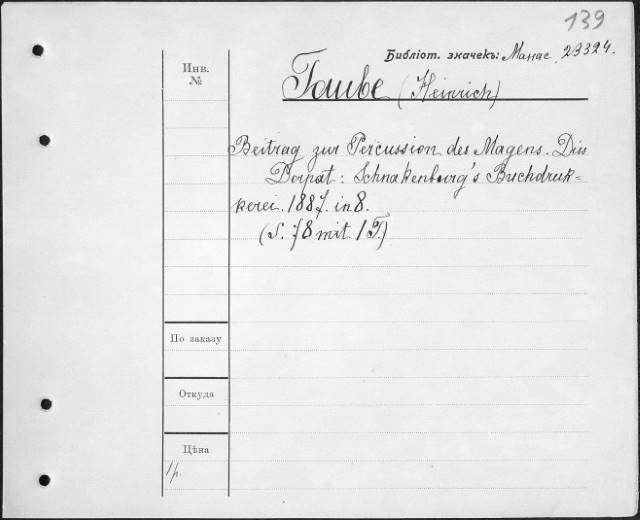 139
Библіот. значекъ: Манас. 23324.
Инв.
№
Taube (Heinrich)
Beitrag zur Percussion des Magens. Diss
Dorpat: Schnakenburg's Buchdruk-
kerei. 1887. in 8.
(S. 78 mit 1 T.)
По заказу
Откуда
Цѣна
1р.